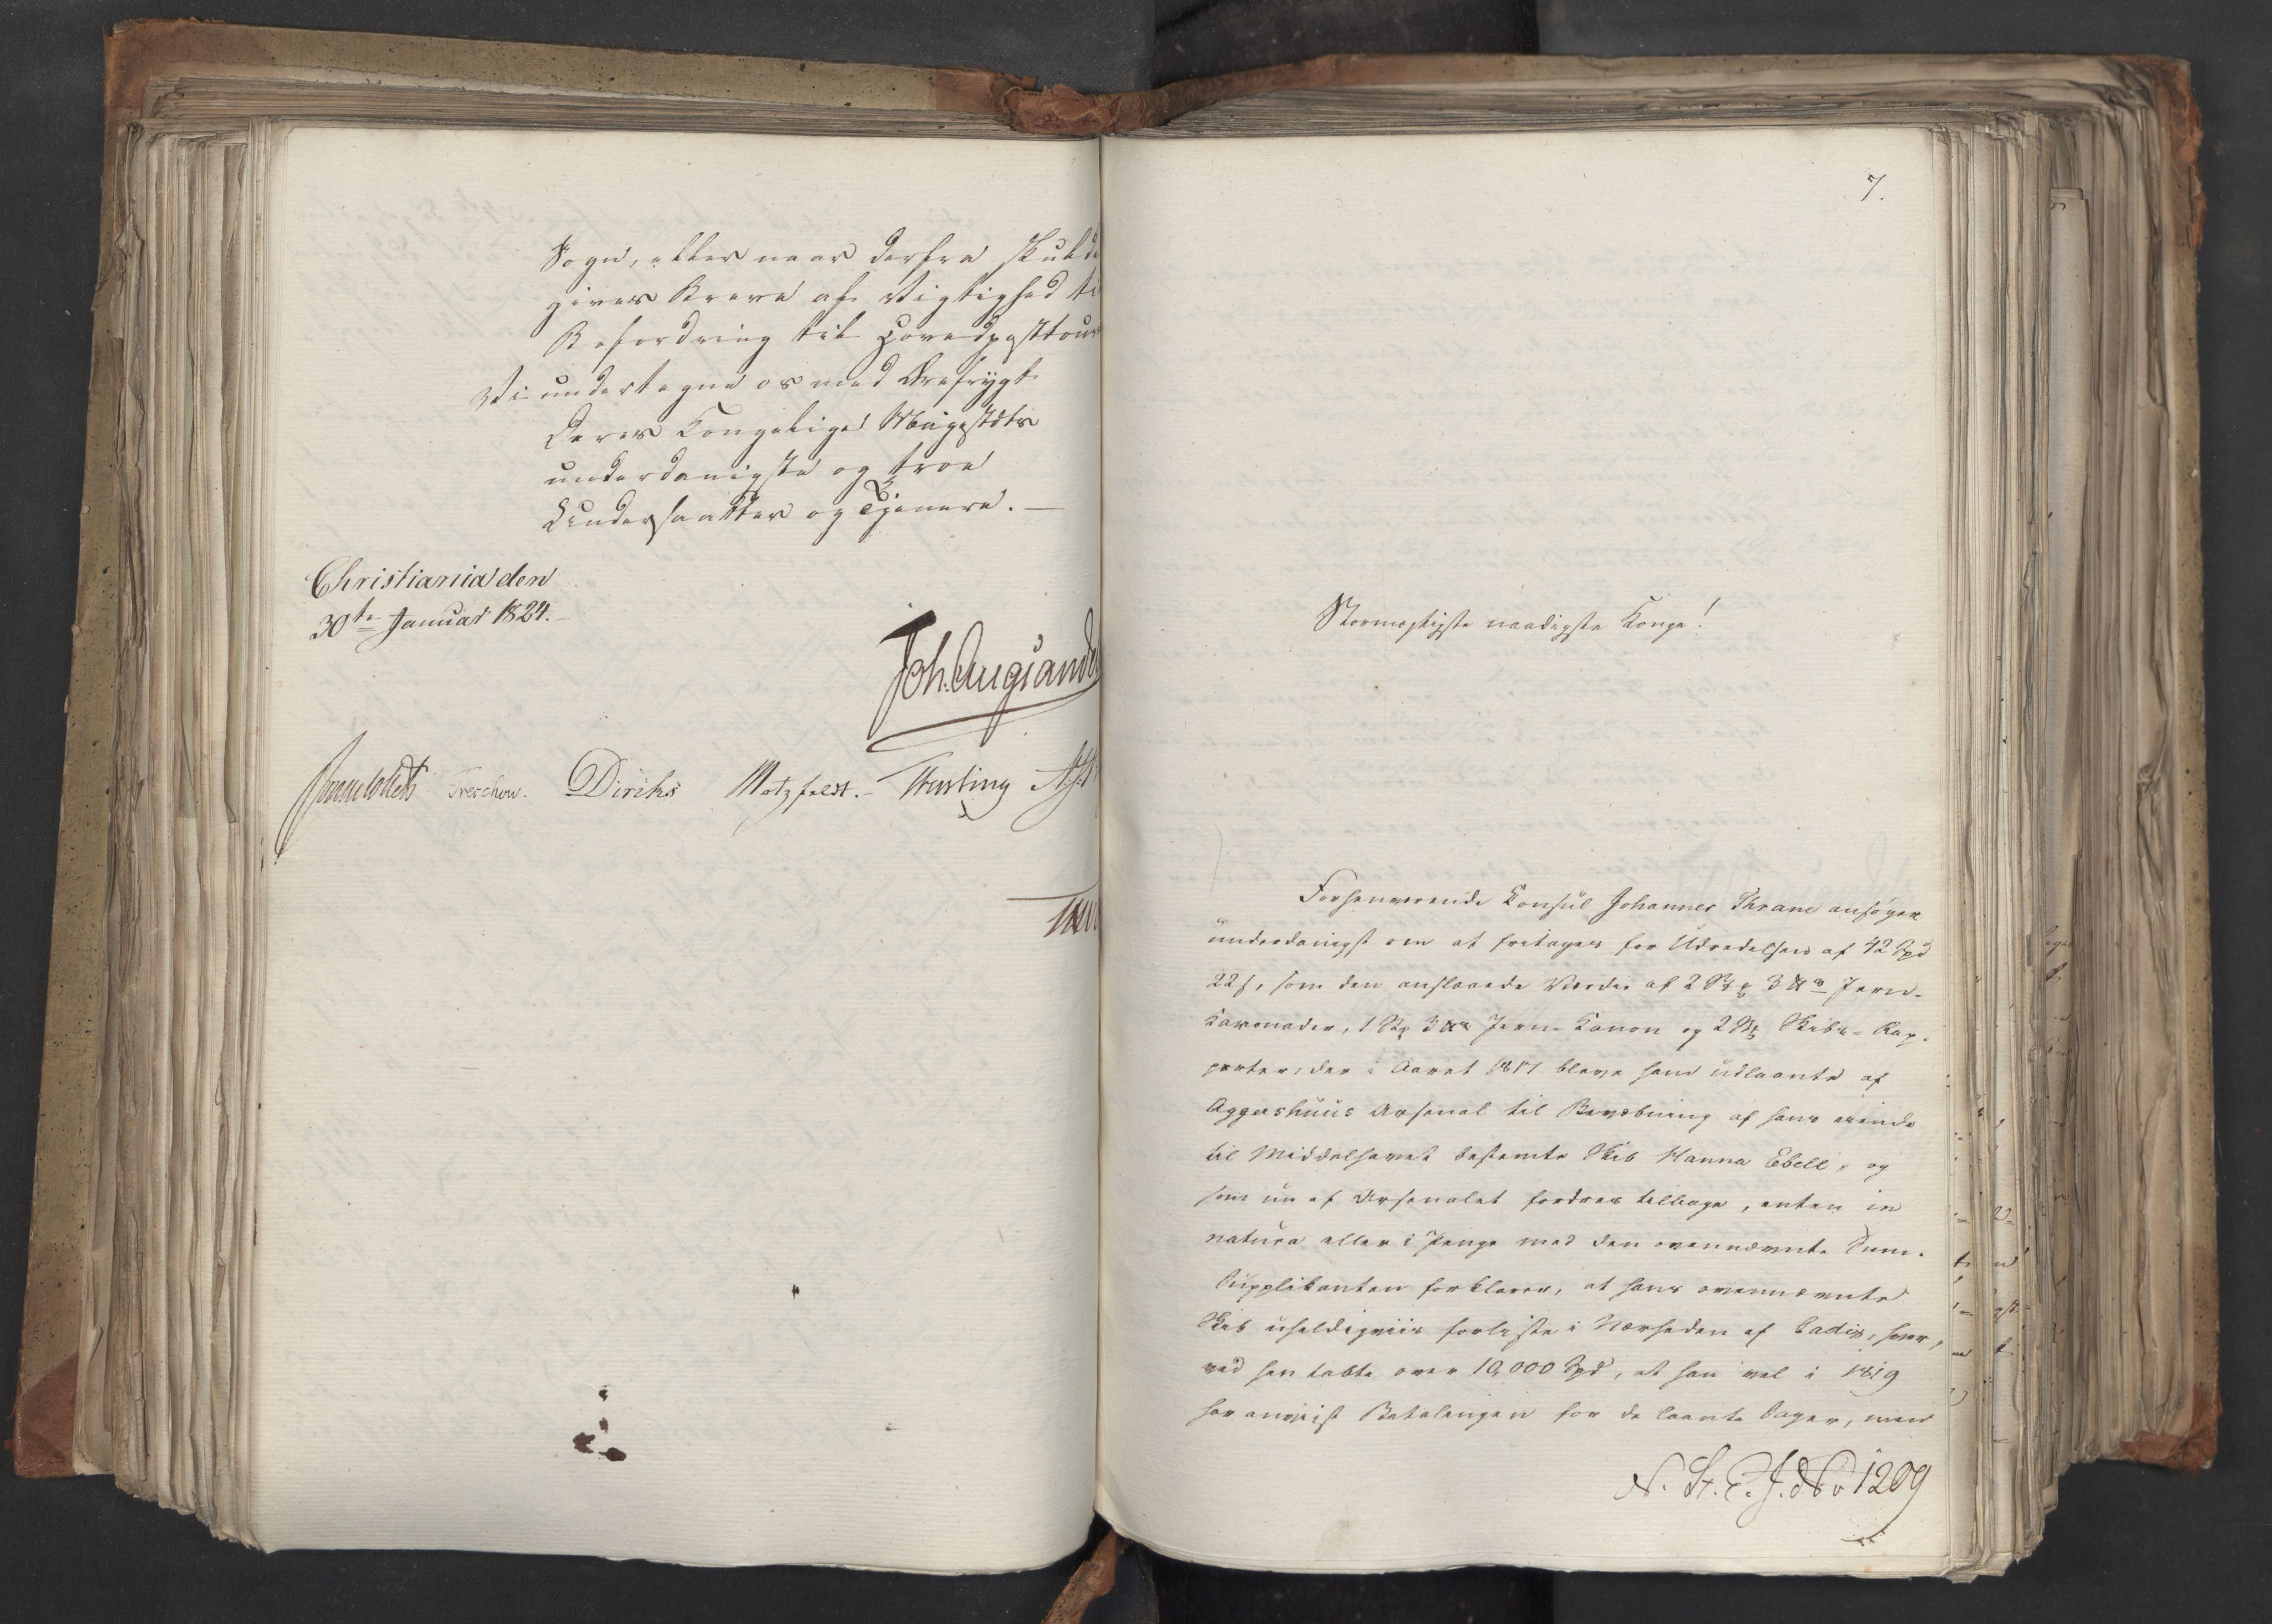 Sogn, eller naar derfra skulde
gives Breve af Vigtighed til
Befordring til Hovedposttour
Vi undertegne os med Ærefrygt
Deres Kongelige Majestæts
underdanigste og troe
Undersaatter og Tjenere. —
Christiania den
30te Januar 1824.
Joh. Aug Sande
Sommerhielm Treschow. Diriks Motzfeldt. Fasting
7.
Stormægtigste naadigste Konge!
Forhenværende Consul Johannes Thrane ansøger
underdanigst om at fritages for Udredelsen af 42 Spd
22 s, som den anslaaede Værdie af 2 Stk 3 Jern-
Caronader, 1 Stk 3 Jern-Canon og 2 Stk Skibs-Rap-
perter, der i Aaret 1817 bleve ham udlaante af
Aggershuus Arsenal til Bevæbning af hans eiende
til Middelhavet bestemte Skib Hanna Ebell, og
som nu af Arsenalet fordres tilbage, enten in
natura eller i Penge med den ovennævnte Sum.
Supplikanten forklarer, at hans ovennævnte
Skib uheldigviis forliste i Nærheden af Cadix, hvor-
ved han tabte over 10,000 Spd, at han vel i 1819
har anviist Betalingen for de laante Sager, men
N. St. E. J. No 1209